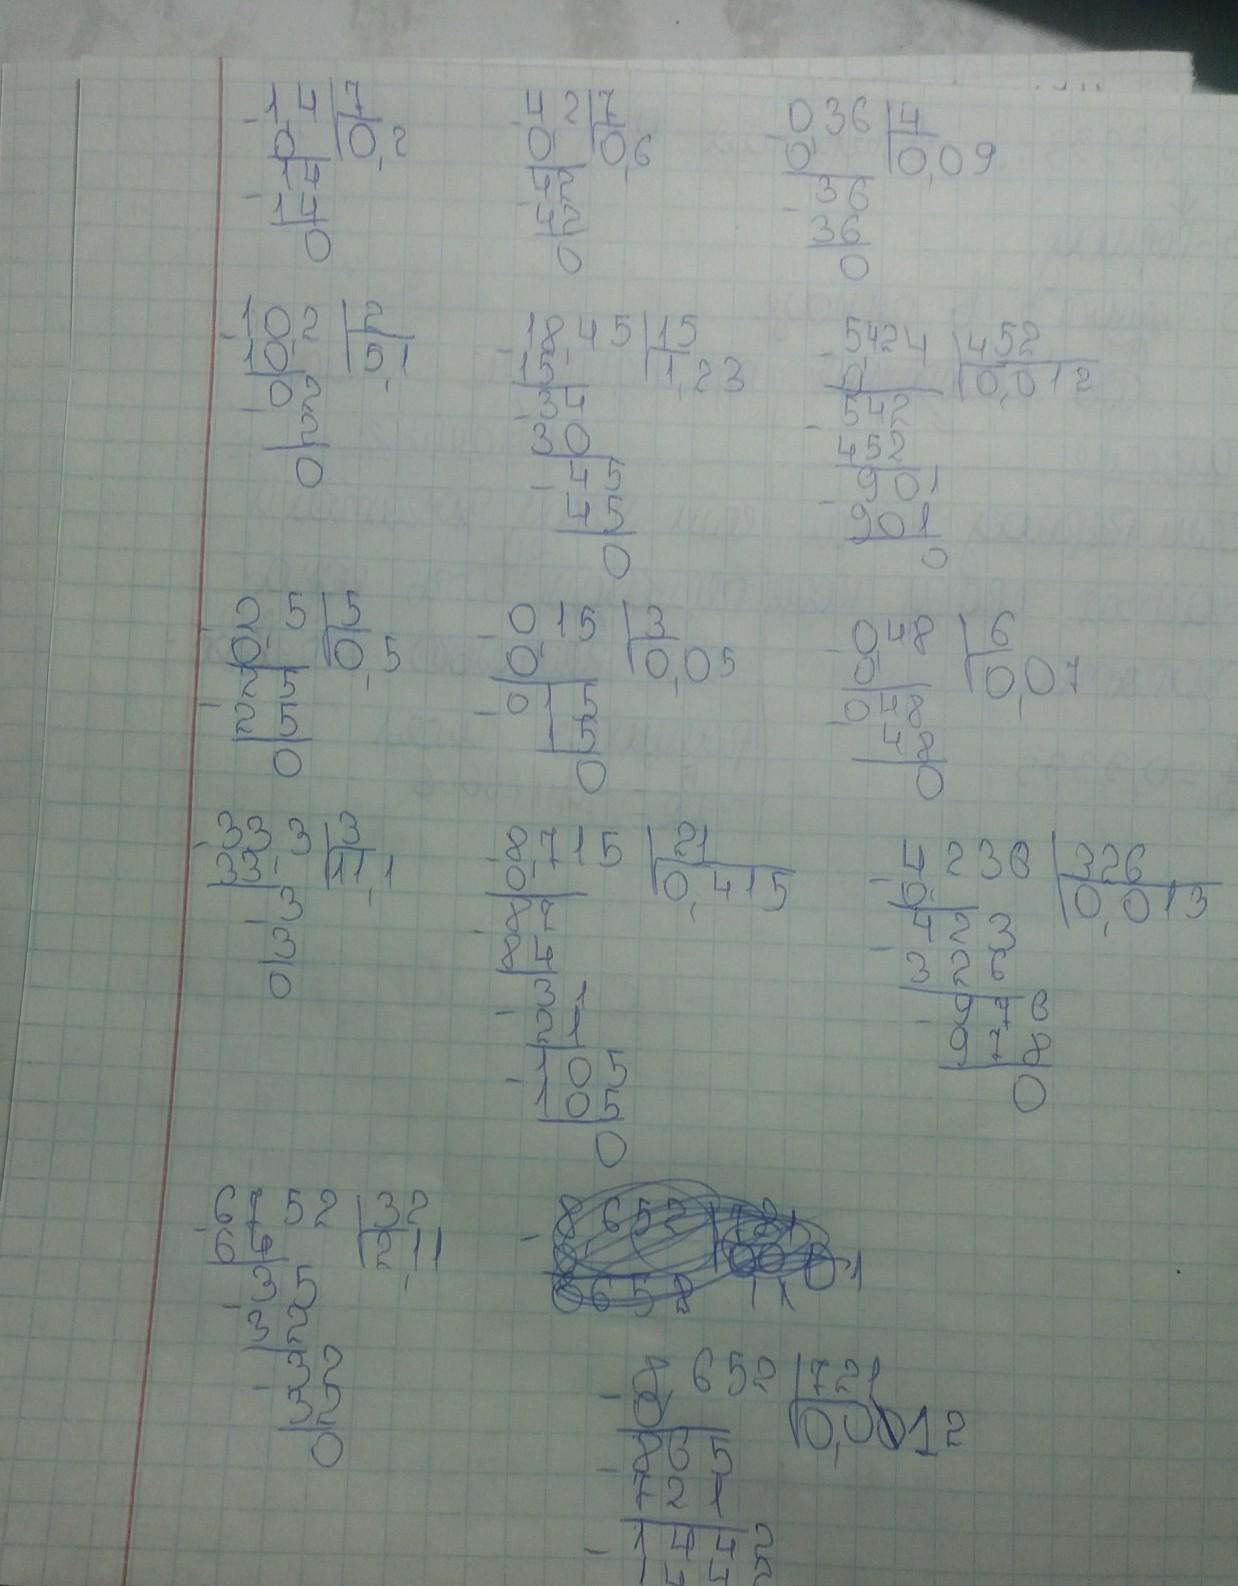 -1,4 |7
0 0,2
14
-14
0
-4,2 |7
0 0,6
-42
42
0
-0,36 |4
0 0,09
-36
36
0
-10,2 |2
10 5,1
02
-2
0
-18,45 |15
15 1,23
-34
30
-45
45
0
-5,424 |452
0 0,012
-542
452
-901
901
0
-2,5 |5
0 0,5
-25
25
0
-0,15 |3
0 0,05
-015
15
0
-0,48 |6
0 0,07
-048
48
0
-33,3 |3
33 11,1
-3
3
0
-8,715 |21
0 0,415
-87
84
-31
21
-105
105
0
-4,238 |326
0 0,013
-423
326
-978
978
0
-67,52 |32
64 2,11
-35
32
-32
32
0
-8,652 |721
0 0,012
-865
721
-1442
1442